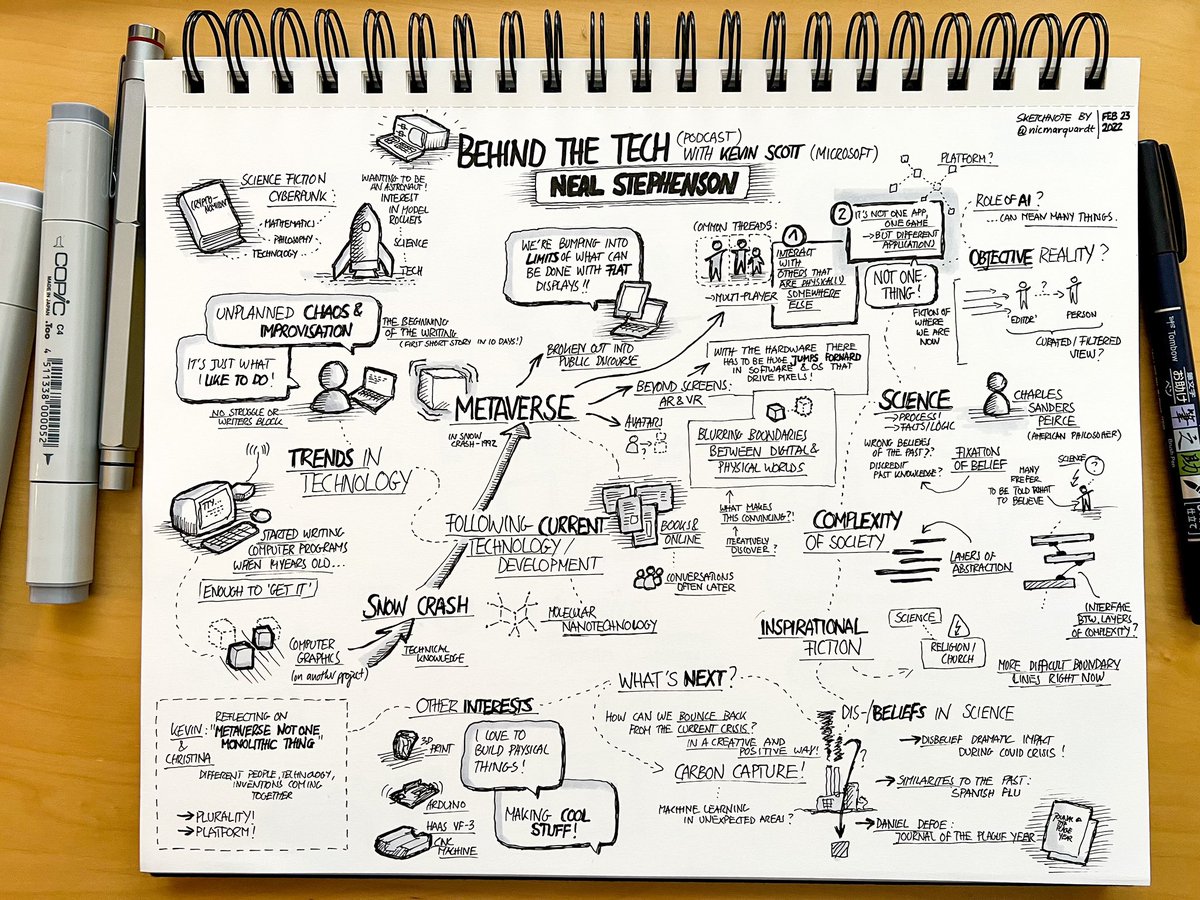 SKETCHNOTE BY
@nicmarquardt
FEB 23
2022
BEHIND THE TECH (PODCAST)
WITH KEVIN SCOTT (MICROSOFT)
NEAL STEPHENSON
SCIENCE FICTION
CYBERPUNK
MATHEMATICS
PHILOSOPHY
TECHNOLOGY
WANTING TO BE
AN ASTRONAUT!
INTEREST
IN MODEL
ROCKETS
SCIENCE
TECH
UNPLANNED CHAOS &
IMPROVISATION
IT'S JUST WHAT
I LIKE TO DO!
NO STRUGGLE OR
WRITERS BLOCK
THE BEGINNING
OF THE WRITING
(FIRST SHORT STORY IN 10 DAYS!)
WE'RE BUMPING INTO
LIMITS OF WHAT CAN
BE DONE WITH FLAT
DISPLAYS!!
COMMON THREADS:
→ MULTI-PLAYER
1
INTERACT
WITH
OTHERS THAT
ARE PHYSICALLY
SOMEWHERE
ELSE
2
IT'S NOT ONE APP,
ONE GAME
→ BUT DIFFERENT
APPLICATIONS
PLATFORM?
NOT ONE
THING!
FICTION OF
WHERE
WE ARE
NOW
ROLE OF AI?
...CAN MEAN MANY THINGS.
OBJECTIVE REALITY?
?
'EDITOR'
PERSON
CURATED/FILTERED
VIEW?
METAVERSE
IN SNOW
CRASH - 1992
BROKEN OUT INTO
PUBLIC DISCOURSE
BEYOND SCREENS:
AR & VR
AVATARS
WITH THE HARDWARE THERE
HAS TO BE HUGE JUMPS FORWARD
IN SOFTWARE & OS THAT
DRIVE PIXELS!
BLURRING BOUNDARIES
BETWEEN DIGITAL &
PHYSICAL WORLDS
WHAT MAKES
THIS CONVINCING?!
ITERATIVELY
DISCOVER?
SCIENCE
→ PROCESS!
→ FACTS/LOGIC
WRONG BELIEVES
OF THE PAST??
DISCREDIT
PAST KNOWLEDGE?
CHARLES
SANDERS
PEIRCE
(AMERICAN PHILOSOPHER)
FIXATION
OF BELIEF
MANY
PREFER
TO BE TOLD WHAT
TO BELIEVE
SCIENCE
?
TRENDS IN
TECHNOLOGY
TTY...
STARTED WRITING
COMPUTER PROGRAMS
WHEN 14 YEARS OLD...
ENOUGH TO 'GET IT'
COMPUTER
GRAPHICS
(on another project)
SNOW CRASH
TECHNICAL
KNOWLEDGE
FOLLOWING CURRENT
TECHNOLOGY/
DEVELOPMENT
MOLECULAR
NANOTECHNOLOGY
BOOKS &
ONLINE
CONVERSATIONS
OFTEN LATER
COMPLEXITY
OF SOCIETY
LAYERS OF
ABSTRACTION
INTERFACE
BTW. LAYERS
OF COMPLEXITY?
INSPIRATIONAL
FICTION
SCIENCE
RELIGION/
CHURCH
MORE DIFFICULT BOUNDARY
LINES RIGHT NOW
REFLECTING ON
KEVIN
&
CHRISTINA
: "METAVERSE NOT ONE
MONOLITHIC THING"
DIFFERENT PEOPLE, TECHNOLOGY,
INVENTIONS COMING
TOGETHER
→ PLURALITY!
→ PLATFORM!
OTHER INTERESTS
3D
PRINT
ARDUINO
HAAS VF-3
CNC
MACHINE
I LOVE TO
BUILD PHYSICAL
THINGS!
MAKING COOL
STUFF!
WHAT'S NEXT?
HOW CAN WE BOUNCE BACK
FROM THE CURRENT CRISIS?
IN A CREATIVE AND
POSITIVE WAY!
CARBON CAPTURE!
MACHINE LEARNING
IN UNEXPECTED AREAS?
?
DIS-/BELIEFS IN SCIENCE
→ DISBELIEF DRAMATIC IMPACT
DURING COVID CRISIS!
→ SIMILARITES TO THE PAST:
SPANISH FLU
→ DANIEL DEFOE:
JOURNAL OF THE PLAGUE YEAR
COPIC
MADE IN JAPAN
Too
C4
4 511338 000052
Tombow